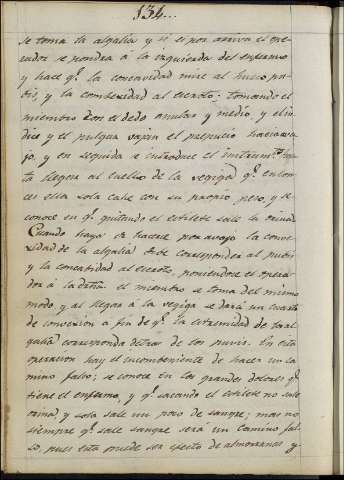 134...
se toma la algalia y si es por arriva el ope-
rador se pondrá á la izquierda del enfermo
y hace q.e la concavidad mire al hueso pu-
bis, y la combexidad al escroto: tomando el
miembro con el dedo anular y medio, y el in-
dice y el pulgar vajan el prepucio hacia ava-
jo, y en seguida se introduce el instrum.to has-
ta llegar al cuello de la vegiga q.e enton-
ces ella sola cahe con su propio peso, y se
conoce en q.e quitando el estilete sale la orina.
Cuando haya de hacerse por avajo la conve-
sidad de la algalia debe corresponder al pubis
y la concabidad al escroto, poniendose el opera-
dor á la dra. el miembro se toma del mismo
modo y al llegar á la vegiga se dará un cuarto
de conversion á fin de q.e la estremidad de la al-
galia corresponda detrás de los puvis. En esta
operacion hay el incombeniente de hacer un ca-
mino falso; se conoce en los grandes dolores q.e
tiene el enfermo, y q.e sacando el estilete no sale
orina y solo sale un poco de sangre; mas no
siempre q.e sale sangre será un camino fal-
so, pues esta puede ser efecto de almorranas y